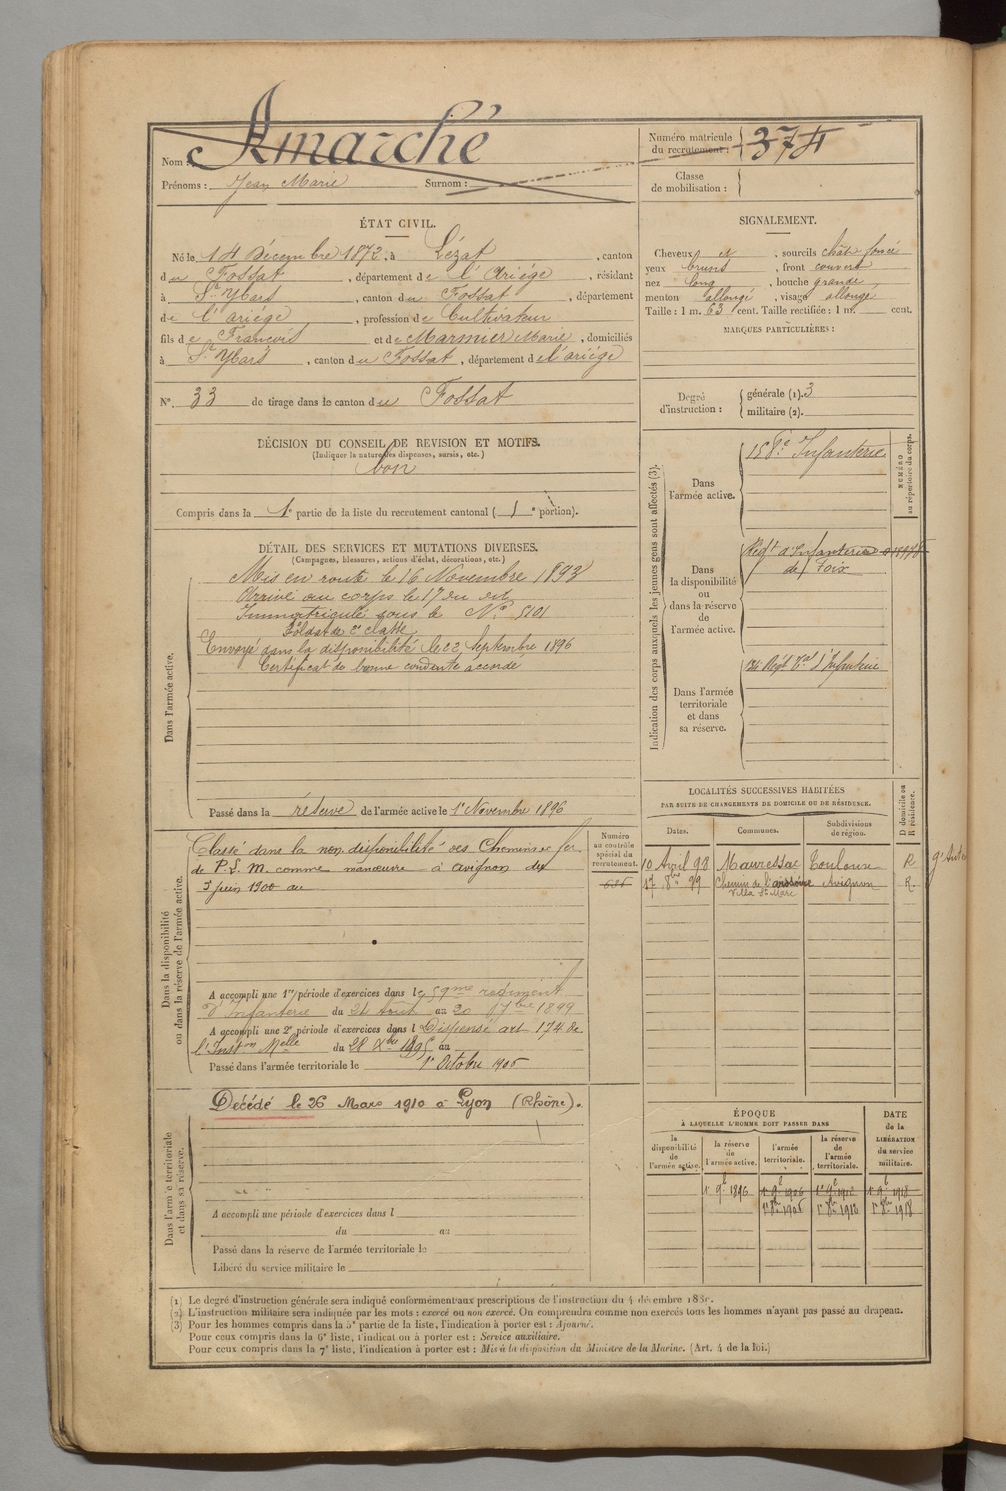 Nom : Amarché
Prénoms : Jean Marie Surnom :
Numéro matricule du recrutement : 374
Classe de mobilisation :
ÉTAT CIVIL.
Né le 14 Décembre 1872, à Lézat, canton
du Fossat, département de l'Ariége, résidant
à St Ybars, canton du Fossat, département
de l'ariége, profession de Cultivateur
fils de François et de Marmier Marie, domiciliés
à St Ybars, canton du Fossat, département de l'ariége
N° 33 de tirage dans le canton du Fossat
SIGNALEMENT.
Cheveux et, sourcils chât. foncé
yeux bruns, front couvert
nez long, bouche grande,
menton allongé, visage allongé,
Taille : 1 m. 63 cent. Taille rectifiée : 1 m. cent.
MARQUES PARTICULIÈRES :
Degré d'instruction : générale (1). 3
militaire (2).
DÉCISION DU CONSEIL DE REVISION ET MOTIFS.
(Indiquer la nature des dispenses, sursis, etc.)
bon
Compris dans la 1e partie de la liste du recrutement cantonal ( 1e portion).
DÉTAIL DES SERVICES ET MUTATIONS DIVERSES.
(Campagnes, blessures, actions d'éclat, décorations, etc.)
Dans l'armée active.
Mis en route le 16 Novembre 1893
Arrivé au corps le 17 du dit
Immatriculé sous le N° 5101
Soldat de 2e classe
Envoyé dans la disponibilité le 22 Septembre 1896
Certificat de bonne conduite accordé
Passé dans la réserve de l'armée active le 1er Novembre 1896
Indication des corps auxquels les jeunes gens sont affectés (3).
NUMÉRO au répertoire du corps.
Dans l'armée active.
158e Infanterie
Dans la disponibilité ou dans la réserve de l'armée active.
Régt d'Infanterie
de Foix
Dans l'armée territoriale et dans sa réserve.
Régt Tal d'Infanterie
Dans la disponibilité ou dans la réserve de l'armée active.
Numéro au contrôle spécial du recrutement.
Classé dans la non disponibilité des Chemins de fer
de P. L. M. comme manœuvre à avignon du
5 juin 1900 au
A accompli une 1re période d'exercices dans le 59me régiment
d'Infanterie du 24 Août au 20 7bre 1899
A accompli une 2e période d'exercices dans l Dispensé art 174 de
l'Inston Melle du 28 Xbre 1895 au
Passé dans l'armée territoriale le 1er Octobre 1906
LOCALITÉS SUCCESSIVES HABITÉES
PAR SUITE DE CHANGEMENTS DE DOMICILE OU DE RÉSIDENCE.
Dates. Communes. Subdivisions de région. D domicile ou R résidence.
10 Avril 98 Mauressac Toulouse R
17 8bre 99 Chemin de l' Avignon R.
Villa St Marc
Dans l'armée territoriale et dans sa réserve.
Décédé le 26 Mars 1910 à Lyon (Rhône).
A accompli une période d'exercices dans l
du au
Passé dans la réserve de l'armée territoriale le
Libéré du service militaire le
ÉPOQUE
À LAQUELLE L'HOMME DOIT PASSER DANS
la disponibilité de l'armée active. la réserve de l'armée active. l'armée territoriale. la réserve de l'armée territoriale.
DATE de la LIBÉRATION du service militaire.
1er 9bre 1896 1er 9bre 1906 1er 9bre 1912 1er 9bre 1918
1er 8bre 1906 1er 8bre 1912 1er 8bre 1918
(1) Le degré d'instruction générale sera indiqué conformément aux prescriptions de l'instruction du 4 décembre 1889.
(2) L'instruction militaire sera indiquée par les mots : exercé ou non exercé. On comprendra comme non exercés tous les hommes n'ayant pas passé au drapeau.
(3) Pour les hommes compris dans la 5e partie de la liste, l'indication à porter est : Ajourné.
Pour ceux compris dans la 6e liste, l'indication à porter est : Service auxiliaire.
Pour ceux compris dans la 7e liste, l'indication à porter est : Mis à la disposition du Ministre de la Marine. (Art. 4 de la loi.)